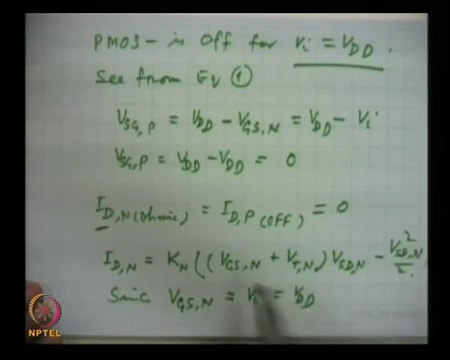 PMOS - is Off for Vi = VDD.
See from Eq ①
VSG,P = VDD - VGS,N = VDD - Vi
VSG,P = VDD - VDD = 0
ID,N (Ohmic) = ID,P (OFF) = 0
ID,N = KN ((VGS,N + VT,N) VSD,N - VSD,N²/2.
Since VGS,N = Vi = VDD
NPTEL